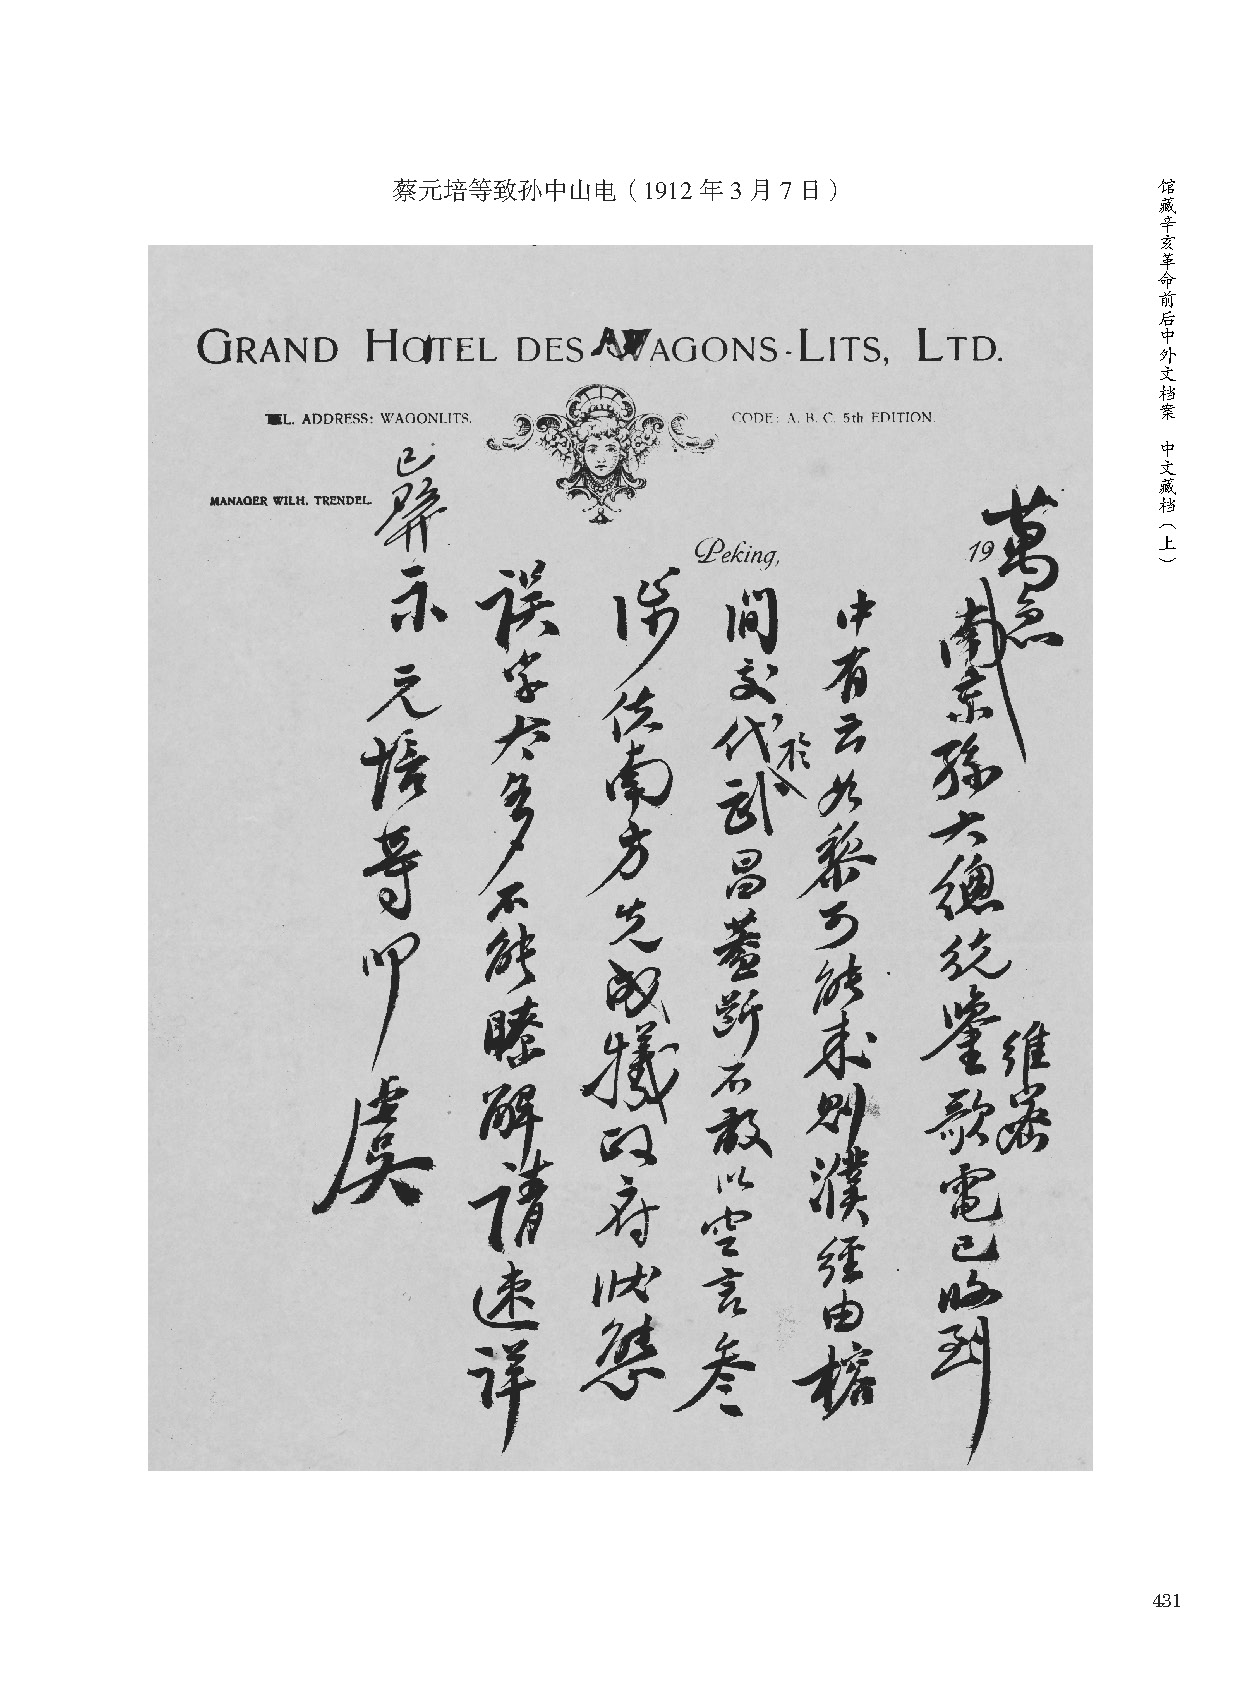 蔡元培等致孙中山电（1912年3月7日）
馆藏辛亥革命前后中外文档案 中文藏档（上）
GRAND HOTEL DES WAGONS-LITS, LTD.
TEL. ADDRESS: WAGONLITS.
CODE: A. B. C. 5th EDITION.
MANAGER WILH. TRENDEL.
Peking, 19
萬急
南京孫大總統鑒維密歌電已收到
中有云如黎可能來則濮經由榕
間交代於武昌蓋斷不敢以空言參
涉使南方先成犧政府狀態
誤字太多不能瞭解請速詳
示元培等叩虞
已
431